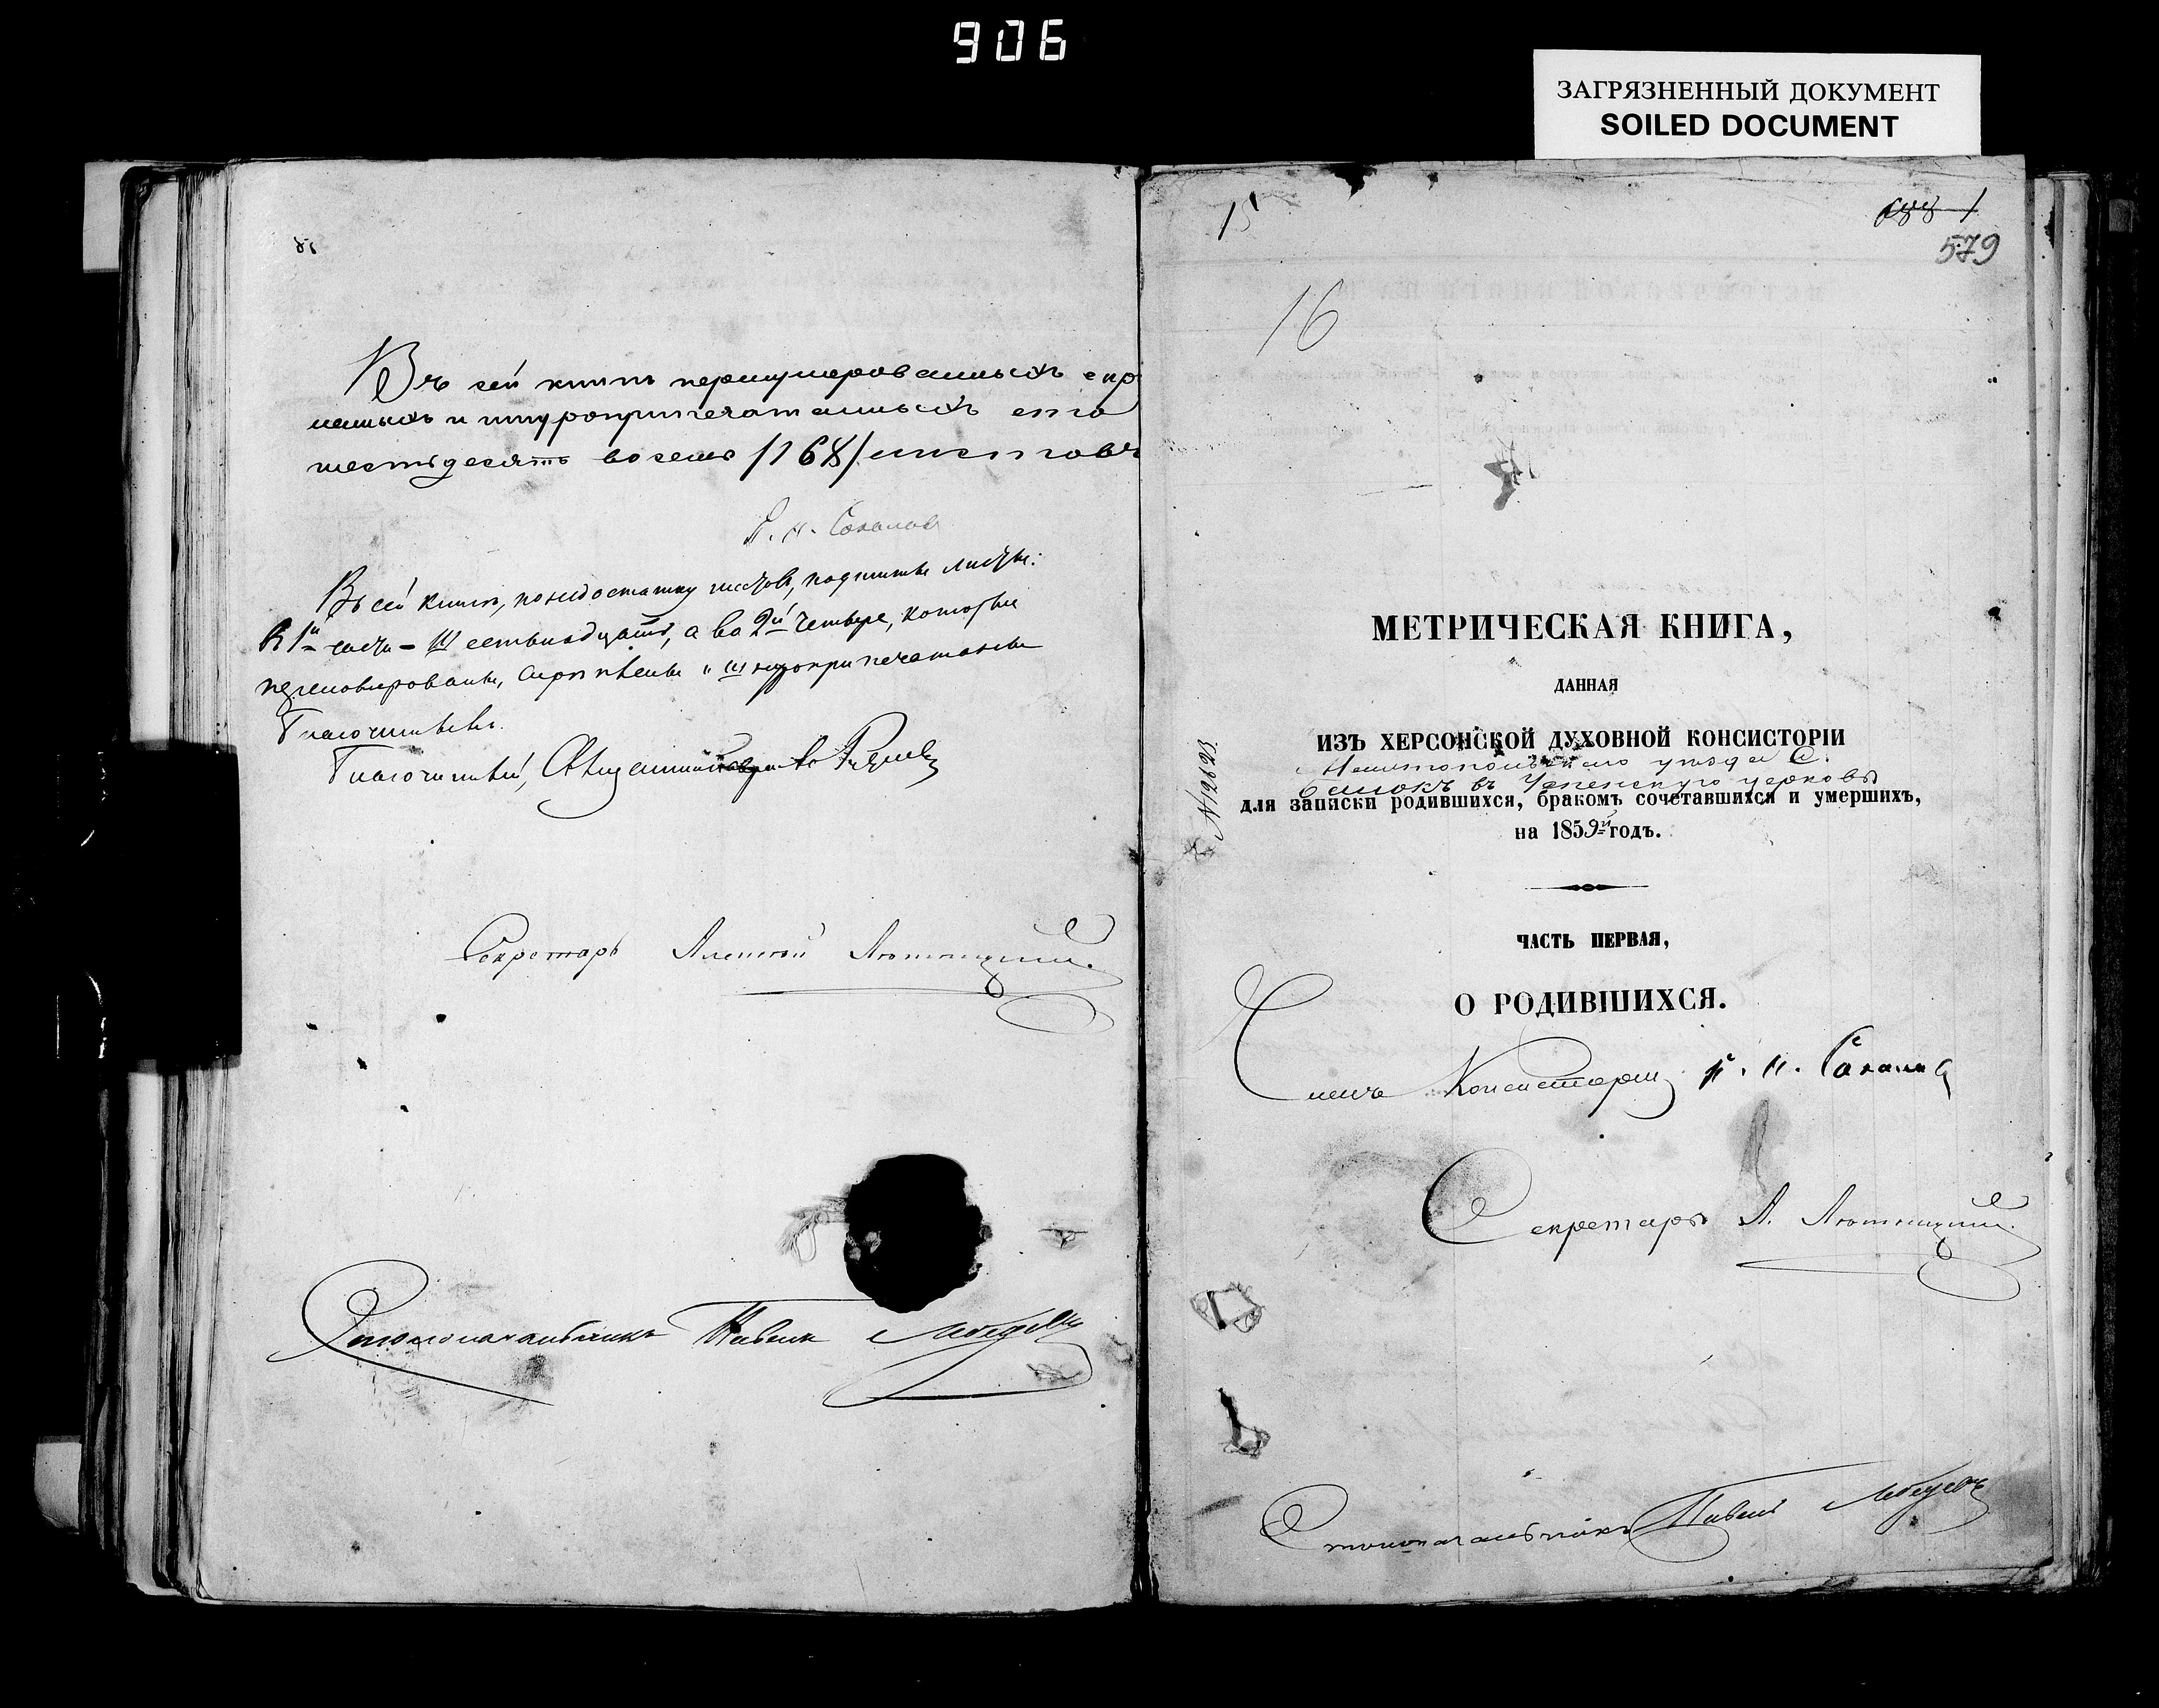 906
ЗАГРЯЗНЕННЫЙ ДОКУМЕНТ
SOILED DOCUMENT
Въ сей книгѣ перенумерованныхъ скрѣ
пленныхъ и шнуроприпечатанныхъ сто
шестьдесятъ восемь /168/ листовъ
Въ сей книгѣ, по недостатку листовъ, подшиты листы:
въ 1й части – Шестьнадцать, а во 2й четыре, которые
перенумерованы, скрѣплены и шнуроприпечатаны
Благочиннымъ.
Благочинный, Священникъ
Секретарь Алексѣй
Столоначальникъ Павелъ Лебедевъ
15
688 1
579
16
МЕТРИЧЕСКАЯ КНИГА,
ДАННАЯ
ИЗЪ ХЕРСОНСКОЙ ДУХОВНОЙ КОНСИСТОРІИ
уѣзда С.
въ Успенскую церковь
для записки родившихся, бракомъ сочетавшихся и умершихъ,
на 1859й годъ.
ЧАСТЬ ПЕРВАЯ,
О РОДИВШИХСЯ.
Членъ Консисторіи
Секретарь А.
Столоначальникъ Павелъ Лебедевъ